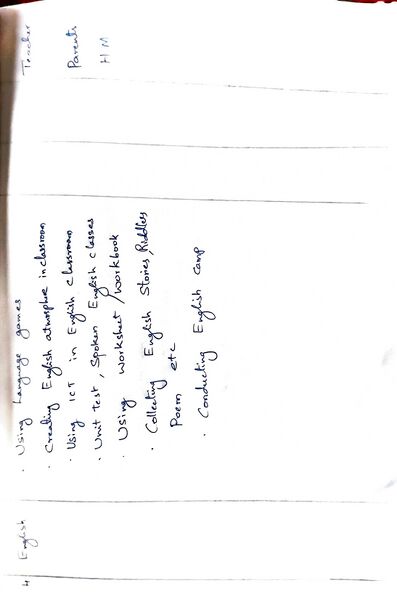 4 English
· Using Language games
· Creating English atmosphere in classroom
· Using ICT in English classroom
· Unit test, Spoken English classes
· Using worksheet / workbook
· Collecting English Stories, Riddles
Poem etc
· Conducting English camp
Teacher
Parents
HM